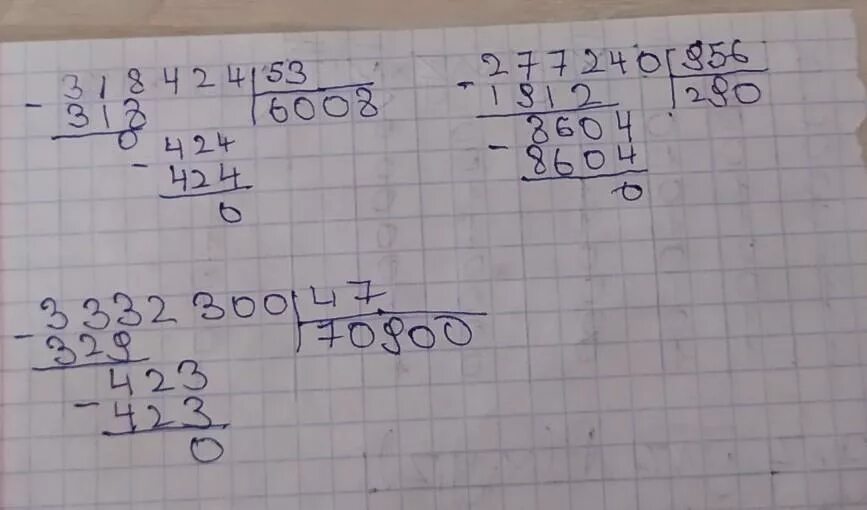 - 318424 | 53
318 | 6008
0
- 424
424
0
- 277240 | 956
1912 | 290
- 8604
8604
0
- 3332300 | 47
329 | 70900
- 423
423
0